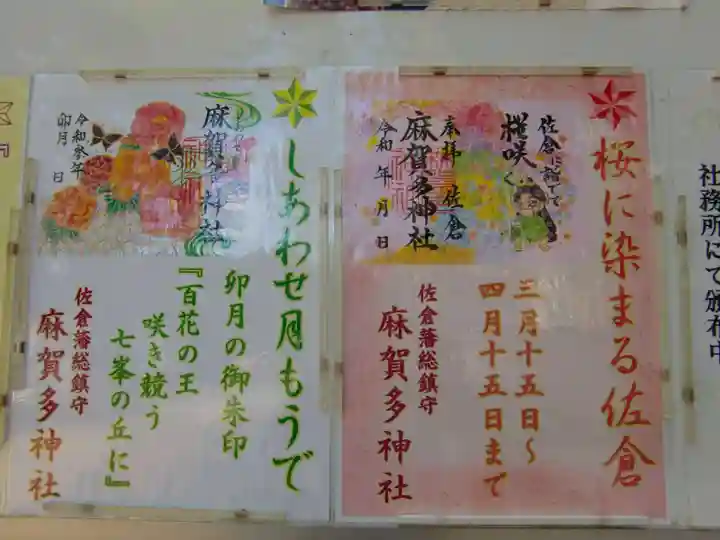 桜に染まる佐倉
佐倉に詣でて
桜咲く
奉拝 佐倉
麻賀多神社
令和 年 月 日
三月十五日～
四月十五日まで
佐倉藩総鎮守
麻賀多神社
しあわせ月もうで
しあわせ
麻賀多神社
令和参年
卯月 日
卯月の御朱印
『百花の王
咲き競う
七峯の丘に』
佐倉藩総鎮守
麻賀多神社
社務所にて頒布中